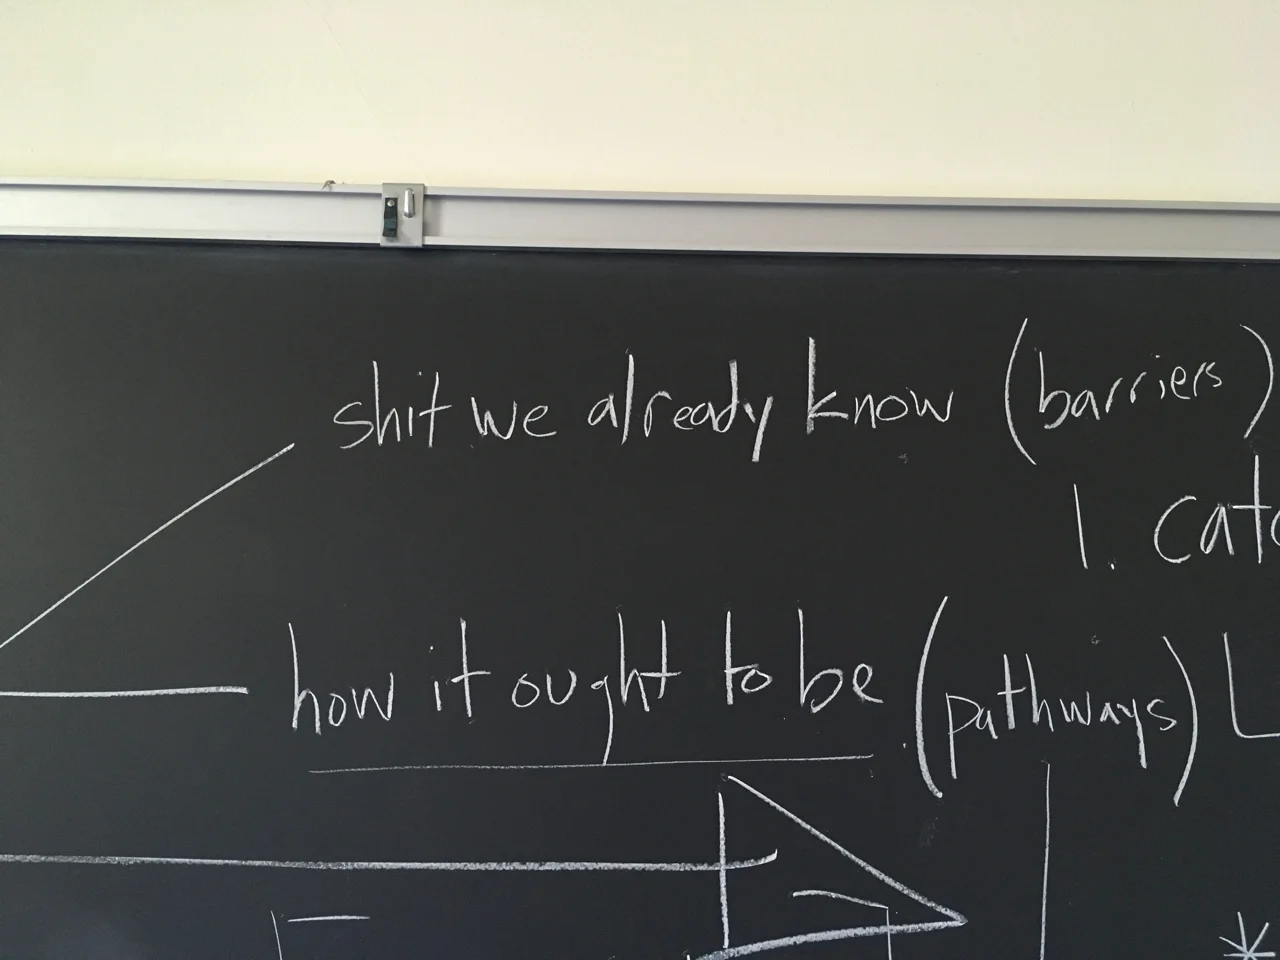 shit we already know (barriers)
1.
how it ought to be (pathways)